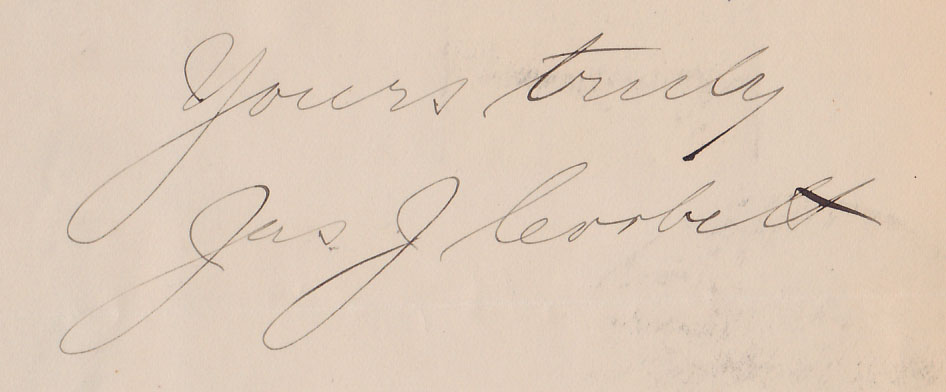 Yours truly
Jas J Corbett